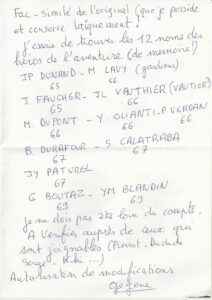 Fac-similé de l'original (que je possède
et conserve laïquement !
J'essaie de trouver les 12 noms des
héros de l'aventure (de mémoire!)
JP DUNAND - M LAVY (gardiens)
65 65
J. FAUCHER - JL VAUTHIER (VAUTIER?)
66
M. DUPONT - Y. OLIANTI - P VERDAN
66 66
B. DURAFOUR - S CALATRABA
67 67
JY PATUREL
67
G BOUTAZ - YM BLANDIN
69 69
Je ne dois pas être loin du compte.
A vérifier auprès de ceux qui
sont joignables (Pierrot -
Serge - ...)
Autorisation de modifications
Gégène